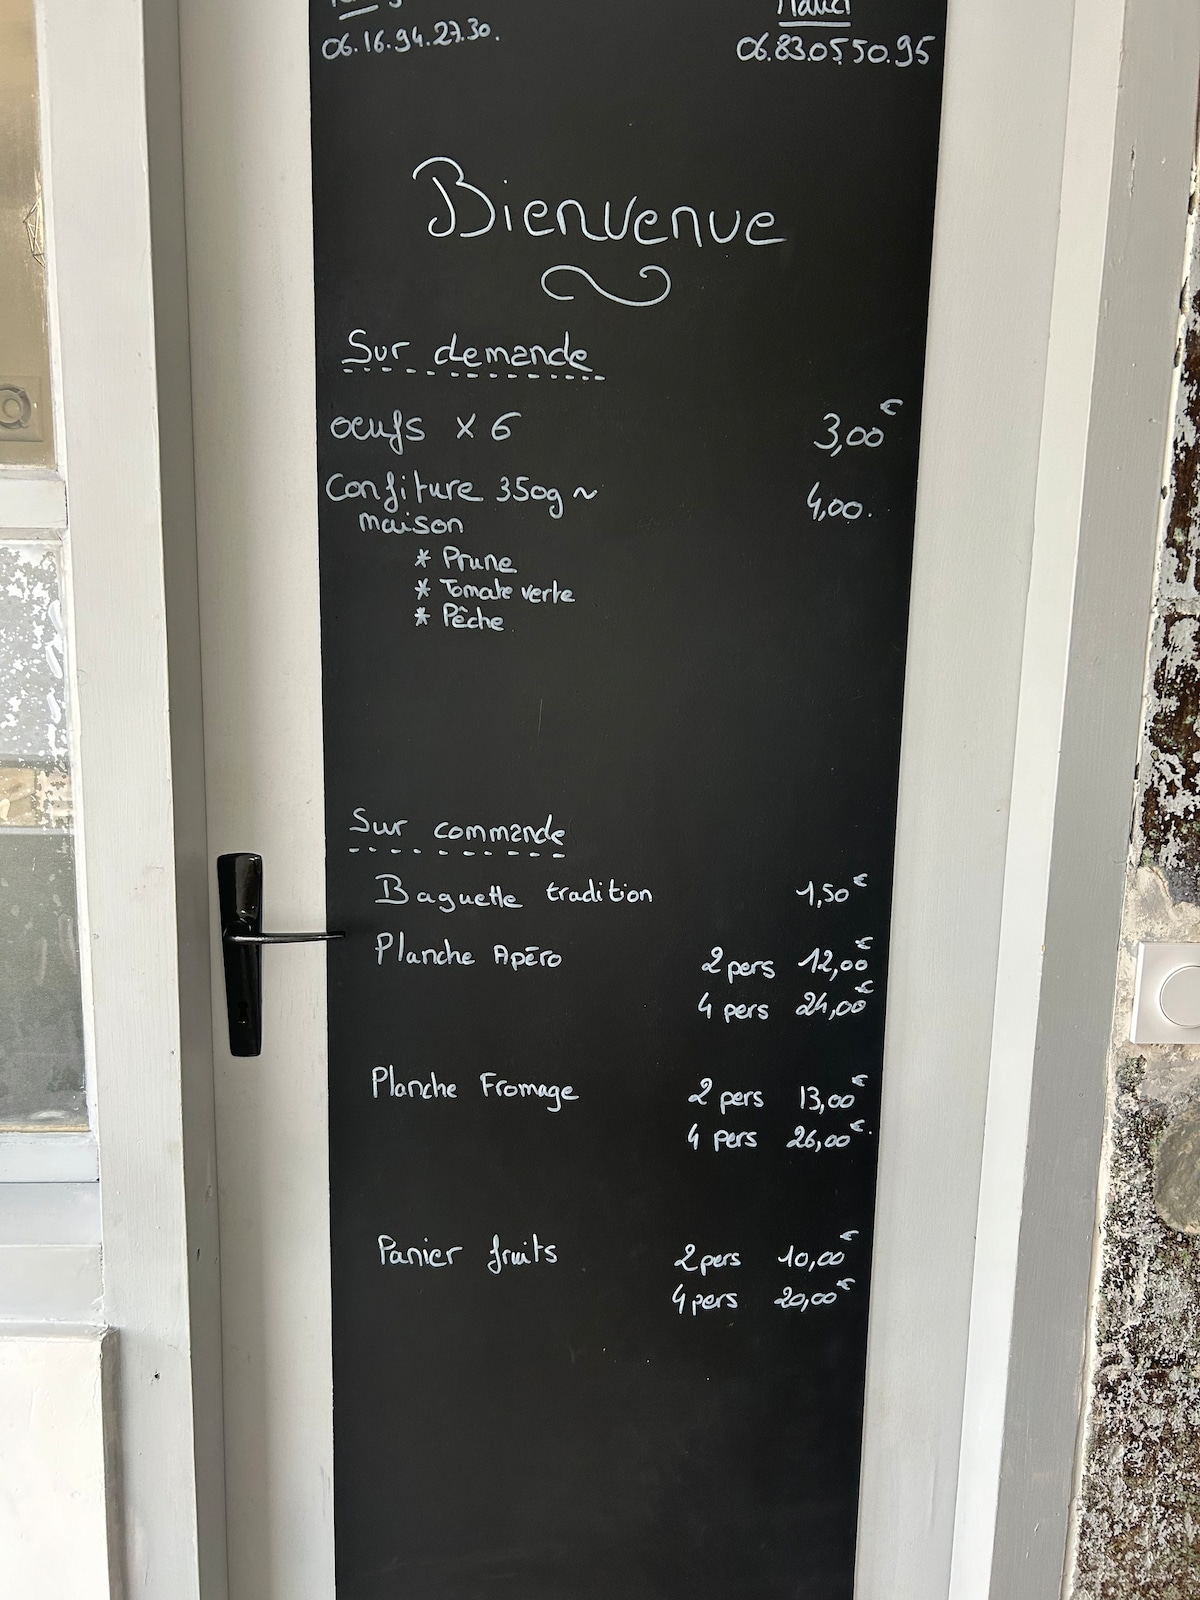 06.16.94.27.30.
06.83.05.50.95
Bienvenue
Sur demande
oeufs x 6 3,00€
Confiture 350g ~ 4,00.
maison
* Prune
* Tomate verte
* Pêche
Sur commande
Baguette tradition 1,50€
Planche Apéro 2 pers 12,00€
4 pers 24,00€
Planche Fromage 2 pers 13,00€
4 pers 26,00€.
Panier fruits 2 pers 10,00€
4 pers 20,00€